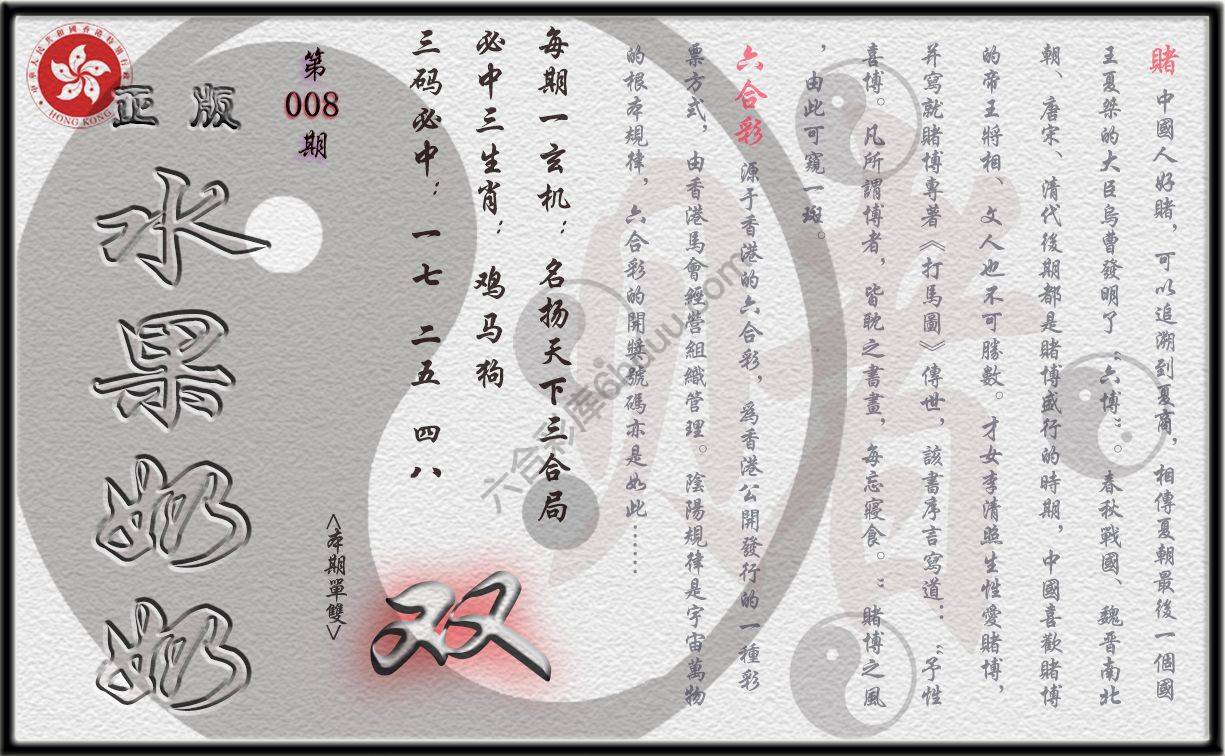 賭中國人好賭，可以追溯到夏商，相傳夏朝最後一個國
王夏桀的大臣烏曹發明了“六博”。春秋戰國、魏晋南北
朝、唐宋、清代後期都是賭博盛行的時期，中國喜歡賭博
的帝王將相、文人也不可勝數。才女李清照生性愛賭博，
并寫就賭博專著《打馬圖》傳世，該書序言寫道：“予性
喜博。凡所謂博者，皆耽之書畫，每忘寢食。”賭博之風
，由此可窺一斑。
六合彩源于香港的六合彩，爲香港公開發行的一種彩
票方式，由香港馬會經營組織管理。陰陽規律是宇宙萬物
的根本規律，六合彩的開獎號碼亦是如此……
每期一玄机：名扬天下三合局
必中三生肖：鸡马狗
三码必中：一七 二五 四八
第
008
期
<本期單雙>
双
正版
水果奶奶
HONG KONG
六合彩库6hduu.com